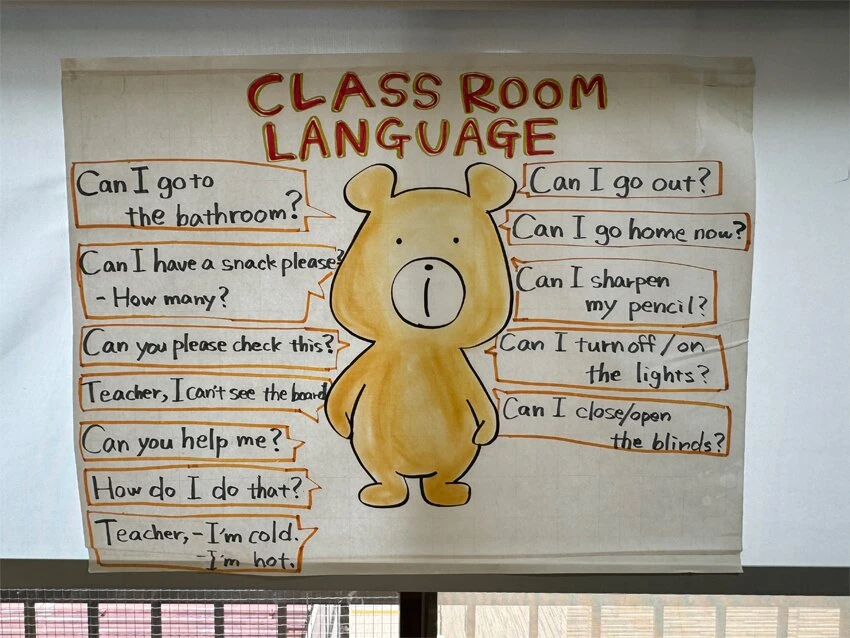 CLASS ROOM
LANGUAGE
Can I go to
the bathroom?
Can I have a snack please?
- How many?
Can you please check this?
Teacher, I can't see the board
Can you help me?
How do I do that?
Teacher, - I'm cold.
- I'm hot.
Can I go out?
Can I go home now?
Can I sharpen
my pencil?
Can I turn off/on
the lights?
Can I close/open
the blinds?